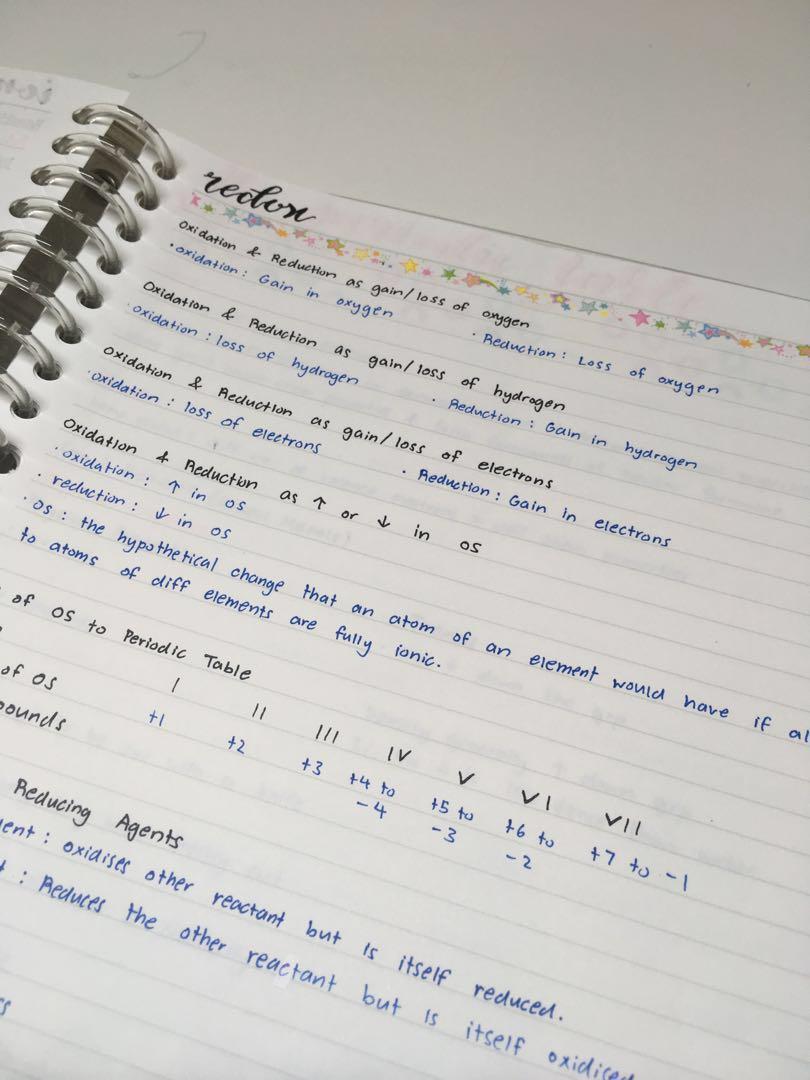 redox
Oxidation & Reduction as gain/loss of oxygen
· oxidation : Gain in oxygen · Reduction : Loss of oxygen
Oxidation & Reduction as gain/loss of hydrogen
· oxidation : loss of hydrogen · Reduction : Gain in hydrogen
Oxidation & Reduction as gain/loss of electrons
· oxidation : loss of electrons · Reduction : Gain in electrons
Oxidation & Reduction as ↑ or ↓ in os
· oxidation : ↑ in os
· reduction : ↓ in os
· os : the hypothetical change that an atom of an element would have if al
to atoms of diff elements are fully ionic.
of OS to Periodic Table
of OS I II III IV V VI VII
pounds +1 +2 +3 +4 to -4 +5 to -3 +6 to -2 +7 to -1
Reducing Agents
ent : oxidises other reactant but is itself reduced.
t : Reduces the other reactant but is itself oxidised